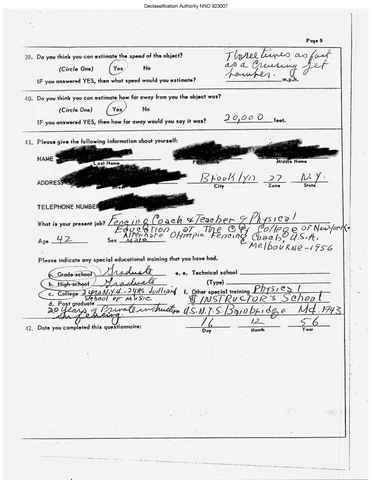 Declassification Authority NND 923007
Page 8
39. Do you think you can estimate the speed of the object?
(Circle One) Yes No
IF you answered YES, then what speed would you estimate?
Three times as fast
as a Cruising Jet
bomber. m.p.h.
40. Do you think you can estimate how far away from you the object was?
(Circle One) Yes No
IF you answered YES, then how far away would you say it was? 20,000 feet.
41. Please give the following information about yourself:
NAME
Last Name Middle Name
ADDRESS Brooklyn 27 N.Y.
City Zone State
TELEPHONE NUMBER
What is your present job? Fencing Coach & Teacher of Physical
Education at The City College of New York
Alternate Olympic Fencing Coach, U.S.A.
Age 42 Sex male
Melbourne-1956
Please indicate any special educational training that you have had.
a. Grade school Graduate e. Technical school
b. High school Graduate (Type)
c. College N.Y.U. - Julliard f. Other special training Physical
School of Music INSTRUCTOR'S School
d. Post graduate U.S.N.T.S. Bainbridge Md. 1943
20 Years of Private instruction
in fencing
42. Date you completed this questionnaire: 16 12 56
Day Month Year